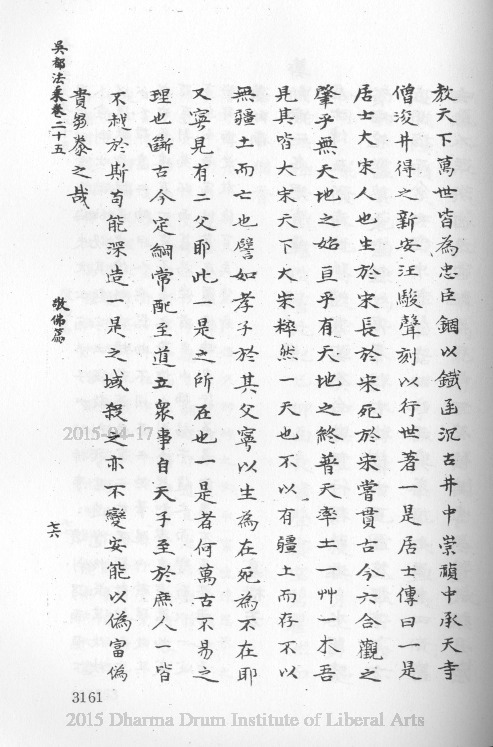 教天下萬世皆為忠臣錮以鐵函沉古井中崇禎中承天寺
僧浚井得之新安汪駿聲刻以行世著一是居士傳曰一是
居士大宋人也生於宋長於宋死於宋嘗貫古今六合觀之
肇乎無天地之始亘乎有天地之終普天率土一艸一木吾
見其皆大宋天下大宋粹然一天也不以有疆土而存不以
無疆土而亡也譬如孝子於其父寧以生為在死為不在耶
又寧見有二父耶此一是之所在也一是者何萬古不易之
理也斷古今定綱常配至道立衆事自天子至於庶人一皆
不離於斯苟能深造一是之域殺之亦不變安能以偽富偽
貴芻豢之哉
吳都法乘卷二十五
敬佛篇
七六
3161
2015-04-17
2015 Dharma Drum Institute of Liberal Arts